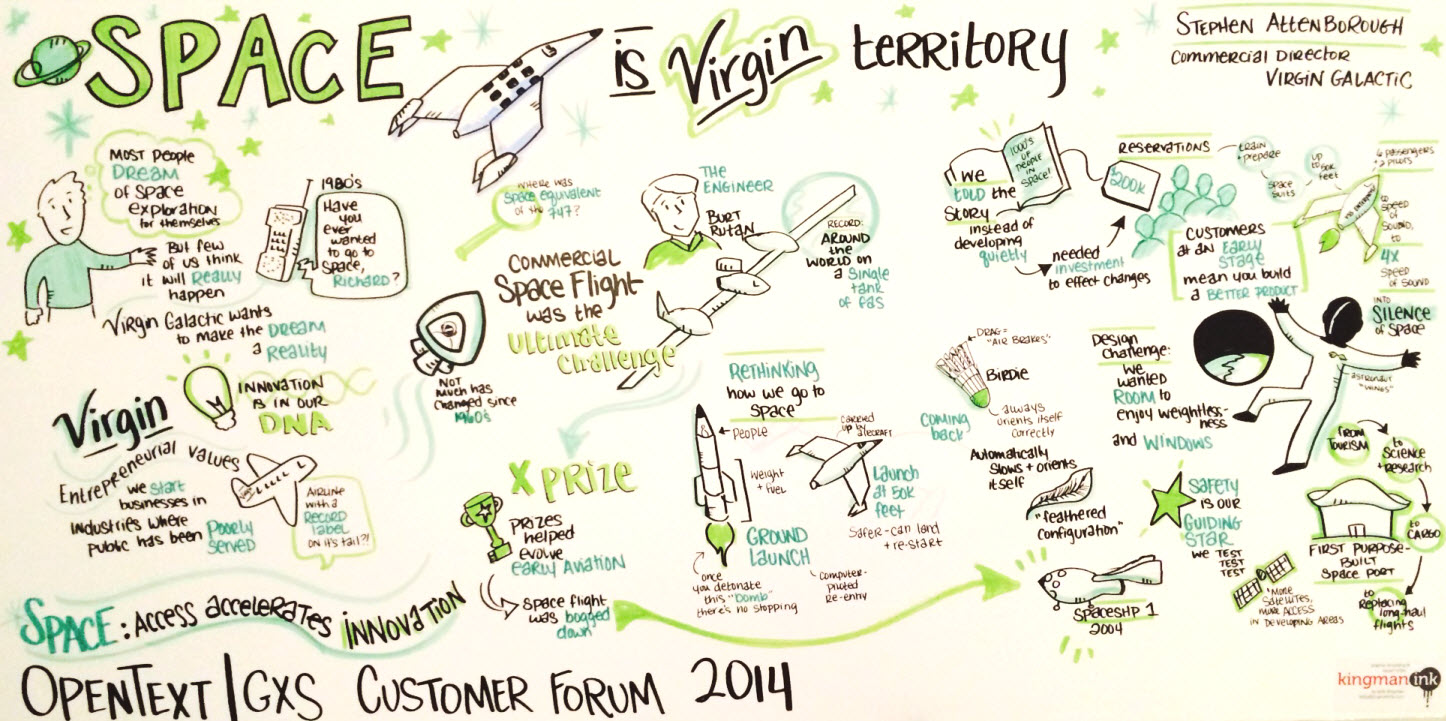 SPACE is Virgin TERRITORY
STEPHEN ATTENBOROUGH
COMMERCIAL DIRECTOR
VIRGIN GALACTIC
MOST PEOPLE
DREAM
OF SPACE
EXPLORATION
for themselves
BUT FEW
OF US THINK
IT WILL REALLY
HAPPEN
1980's
HAVE
YOU
EVER
WANTED
TO GO TO
SPACE,
RICHARD?
VIRGIN GALACTIC WANTS
TO MAKE THE DREAM
A
REALITY
Virgin
INNOVATION
IS IN OUR
DNA
ENTREPRENEURIAL VALUES
WE START
BUSINESSES IN
INDUSTRIES WHERE
PUBLIC HAS BEEN POORLY
SERVED
AIRLINE
WITH A
RECORD
LABEL
ON IT'S TAIL?!
SPACE: ACCESS ACCELERATES INNOVATION
WHERE WAS
SPACE EQUIVALENT
OF THE 747?
COMMERCIAL
SPACE FLIGHT
WAS THE
ULTIMATE
CHALLENGE
NOT
MUCH HAS
CHANGED SINCE
1960's
THE
ENGINEER
BURT
RUTAN
RECORD:
AROUND
THE
WORLD ON
A SINGLE
TANK
OF GAS
X PRIZE
PRIZES
HELPED
EVOLVE
EARLY AVIATION
SPACE FLIGHT
WAS BOGGED
DOWN
RETHINKING
HOW WE GO TO
SPACE
PEOPLE
WEIGHT
+ FUEL
GROUND
LAUNCH
ONCE
YOU DETONATE
THIS "BOMB"
THERE'S NO STOPPING
CARRIED
UP BY
AIRCRAFT
LAUNCH
AT 50K
FEET
SAFER-CAN LAND
+ RE-START
COMPUTER-
PILOTED
RE-ENTRY
WE
TOLD THE
STORY
INSTEAD OF
DEVELOPING
QUIETLY
1000'S
OF
PEOPLE
IN
SPACE!
NEEDED
INVESTMENT
TO EFFECT CHANGES
RESERVATIONS
$200K
TRAIN
+ PREPARE
SPACE
SUITS
UP
TO 50K
FEET
6 PASSENGERS
2 PILOTS
VSS ENTERPRISE
TO
SPEED
OF
SOUND,
TO
4X
SPEED
OF SOUND
INTO
SILENCE
OF SPACE
CUSTOMERS
AT AN EARLY
STAGE
MEAN YOU BUILD
A BETTER PRODUCT
COMING
BACK
DRAG =
"AIR BRAKES"
BIRDIE
ALWAYS
ORIENTS ITSELF
CORRECTLY
AUTOMATICALLY
SLOWS + ORIENTS
ITSELF
"FEATHERED
CONFIGURATION"
SPACESHIP 1
2004
DESIGN
CHALLENGE:
WE
WANTED
ROOM TO
ENJOY WEIGHTLESS-
NESS
AND WINDOWS
ASTRONAUT
"WINGS"
SAFETY
IS OUR
GUIDING
STAR
WE TEST
TEST
TEST
FROM
TOURISM
TO
SCIENCE
+ RESEARCH
TO
CARGO
TO
REPLACING
LONG-HAUL
FLIGHTS
FIRST PURPOSE-
BUILT
SPACE PORT
"MORE
SATELLITES,
MORE ACCESS
IN DEVELOPING AREAS
OPENTEXT | GXS CUSTOMER FORUM 2014
kingman ink